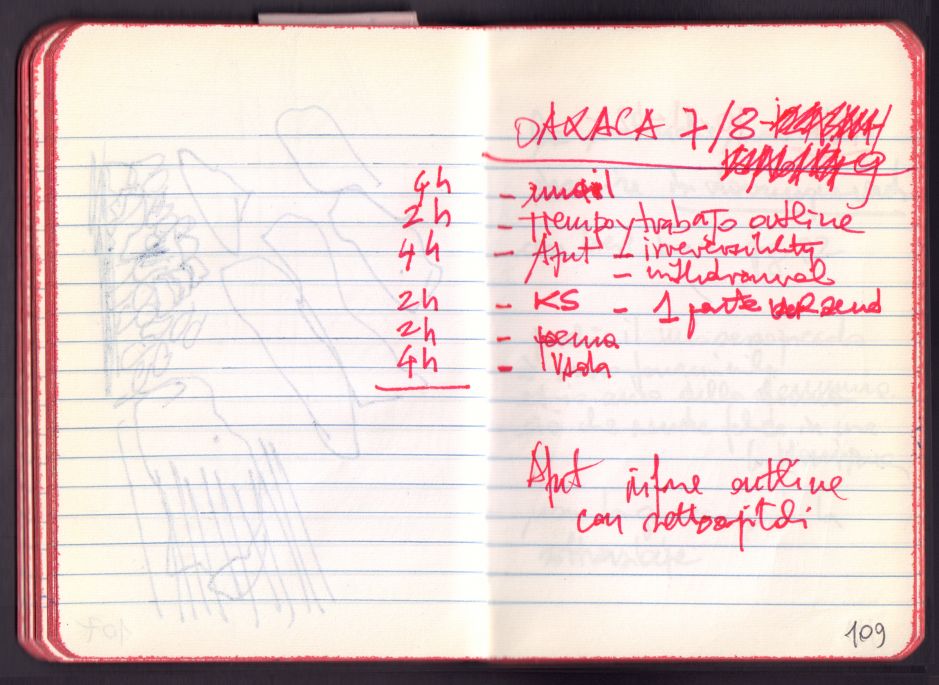 OAXACA 7/8-
9
4h - email
2h - tiempo y trabajo outline
4h - Aput - irreversibility
- withdrawal
2h - KS - 1 parte
2h - poema
4h -
Aput outline
con sottocapitoli
109
107